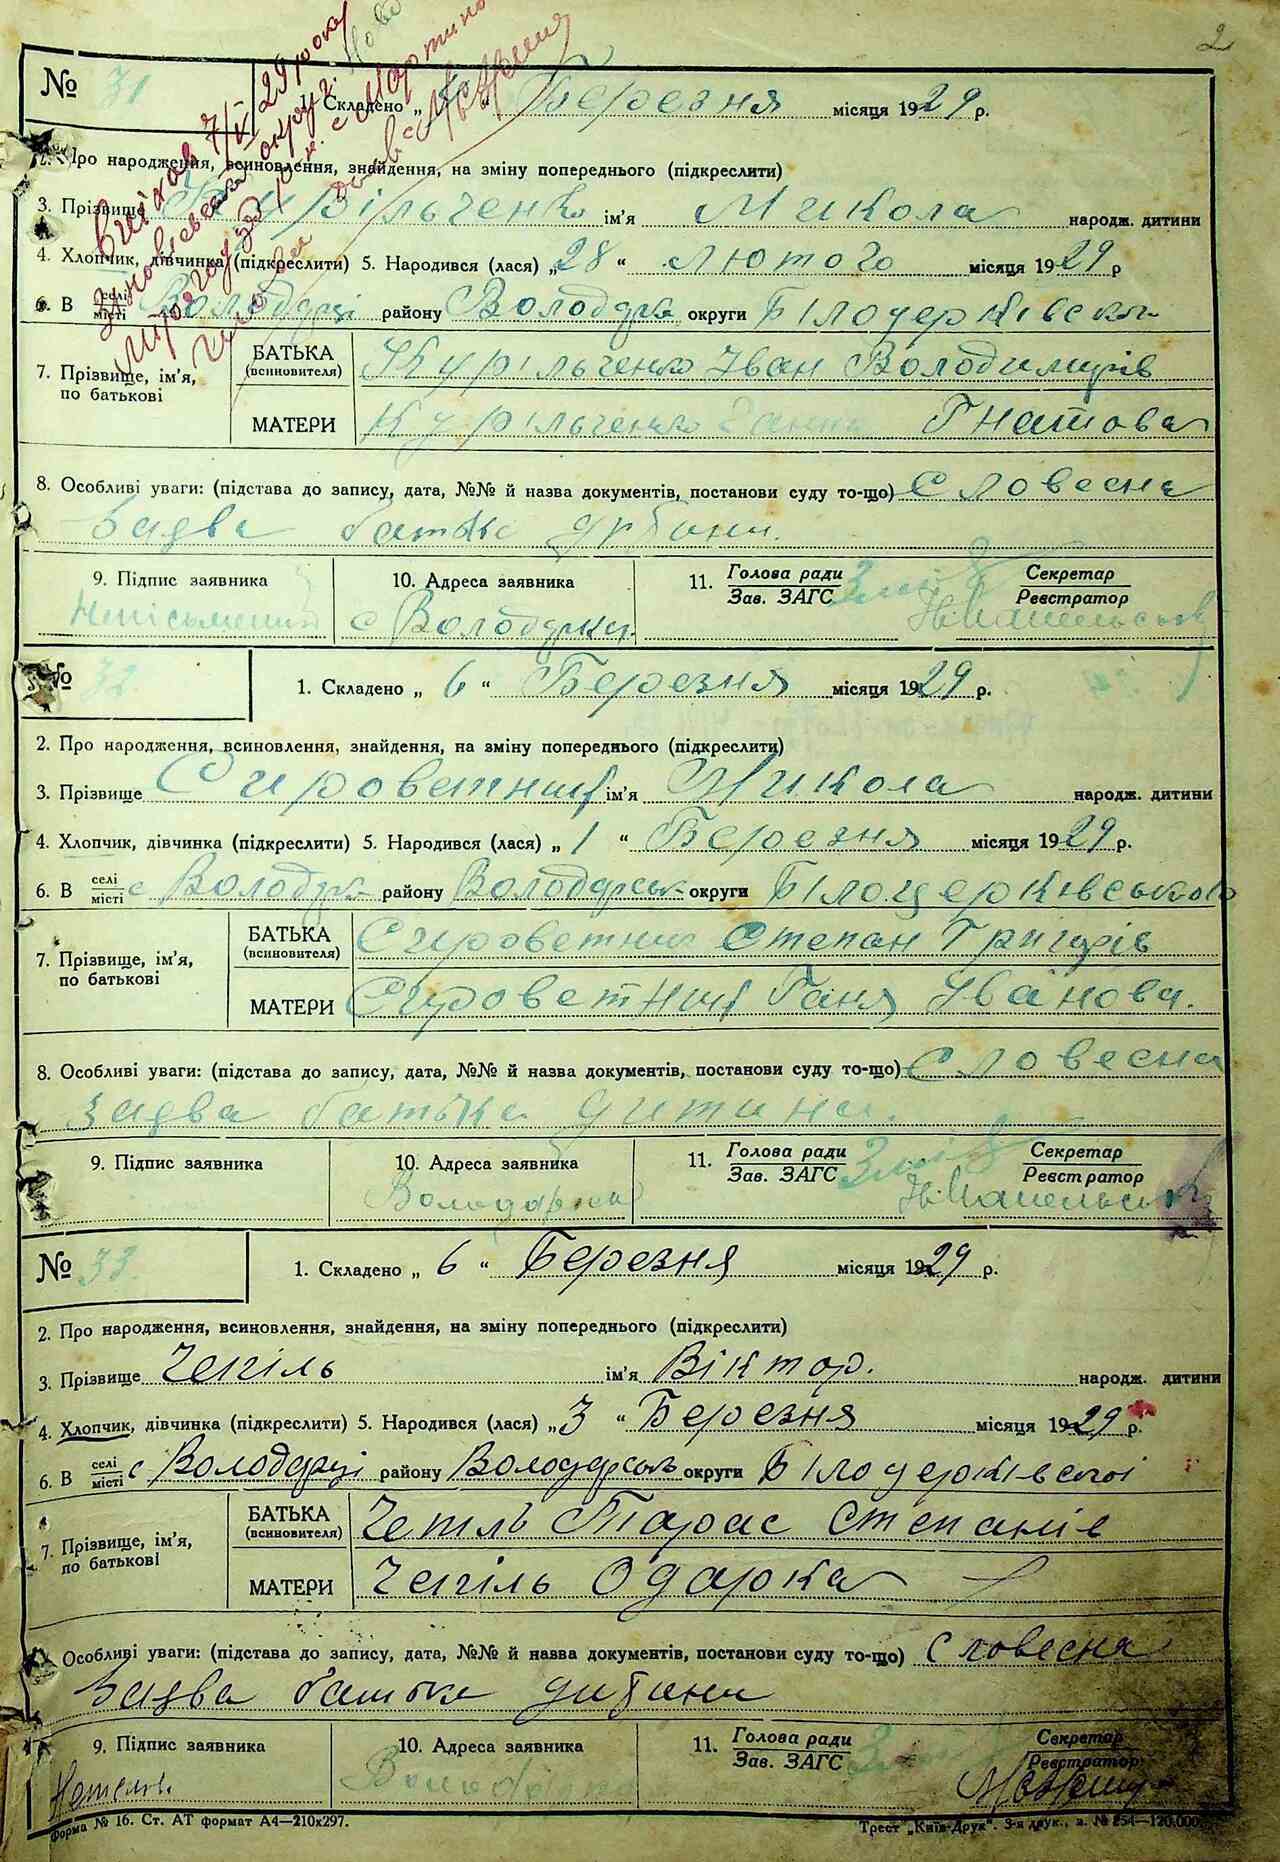 2
№ 31
1. Складено „ “ Березня місяця 1929 р.
Виїхав 7/V 29 року
Зіновієвськ округ.
2. Про народження, всиновлення, знайдення, на зміну попереднього (підкреслити)
3. Прізвище Курільченко ім'я Микола народж. дитини
4. Хлопчик, дівчинка (підкреслити) 5. Народився (лася) „28“ лютого місяця 1929 р
6. В селі/місті Володарці району Володарка округи Білоцерківська
7. Прізвище, ім'я, по батькові
БАТЬКА (всиновителя) Курільченко Іван Володимирів
МАТЕРИ Курільченко Ганна Гнатова
8. Особливі уваги: (підстава до запису, дата, №№ й назва документів, постанови суду то-що) Словесна
заява батька дитини.
9. Підпис заявника 10. Адреса заявника 11. Голова ради/Зав. ЗАГС Секретар/Реєстратор
Неписьменний с Володарка
№ 32
1. Складено „6“ Березня місяця 1929 р.
2. Про народження, всиновлення, знайдення, на зміну попереднього (підкреслити)
3. Прізвище Сироветник ім'я Микола народж. дитини
4. Хлопчик, дівчинка (підкреслити) 5. Народився (лася) „1“ Березня місяця 1929 р.
6. В селі/місті с Володарка району Володарськ округи Білоцерківського
7. Прізвище, ім'я, по батькові
БАТЬКА (всиновителя) Сироветник Степан Григорів
МАТЕРИ Сироветник Ганя Іванова.
8. Особливі уваги: (підстава до запису, дата, №№ й назва документів, постанови суду то-що) Словесна
заява батька дитини.
9. Підпис заявника 10. Адреса заявника 11. Голова ради/Зав. ЗАГС Секретар/Реєстратор
Володарка
№ 33
1. Складено „6“ Березня місяця 1929 р.
2. Про народження, всиновлення, знайдення, на зміну попереднього (підкреслити)
3. Прізвище Чепіль ім'я Віктор. народж. дитини
4. Хлопчик, дівчинка (підкреслити) 5. Народився (лася) „3“ Березня місяця 1929 р.
6. В селі/місті с Володарці району Володарськ округи Білоцерківської
7. Прізвище, ім'я, по батькові
БАТЬКА (всиновителя) Чепіль Тарас Степанів
МАТЕРИ Чепіль Одарка
Особливі уваги: (підстава до запису, дата, №№ й назва документів, постанови суду то-що) Словесна
Заява батька дитини
9. Підпис заявника 10. Адреса заявника 11. Голова ради/Зав. ЗАГС Секретар/Реєстратор
Володарка
Форма № 16. Ст. АТ формат А4—210х297. Трест „Київ-Друк“. 3-я друк., з. № 254—120.000.